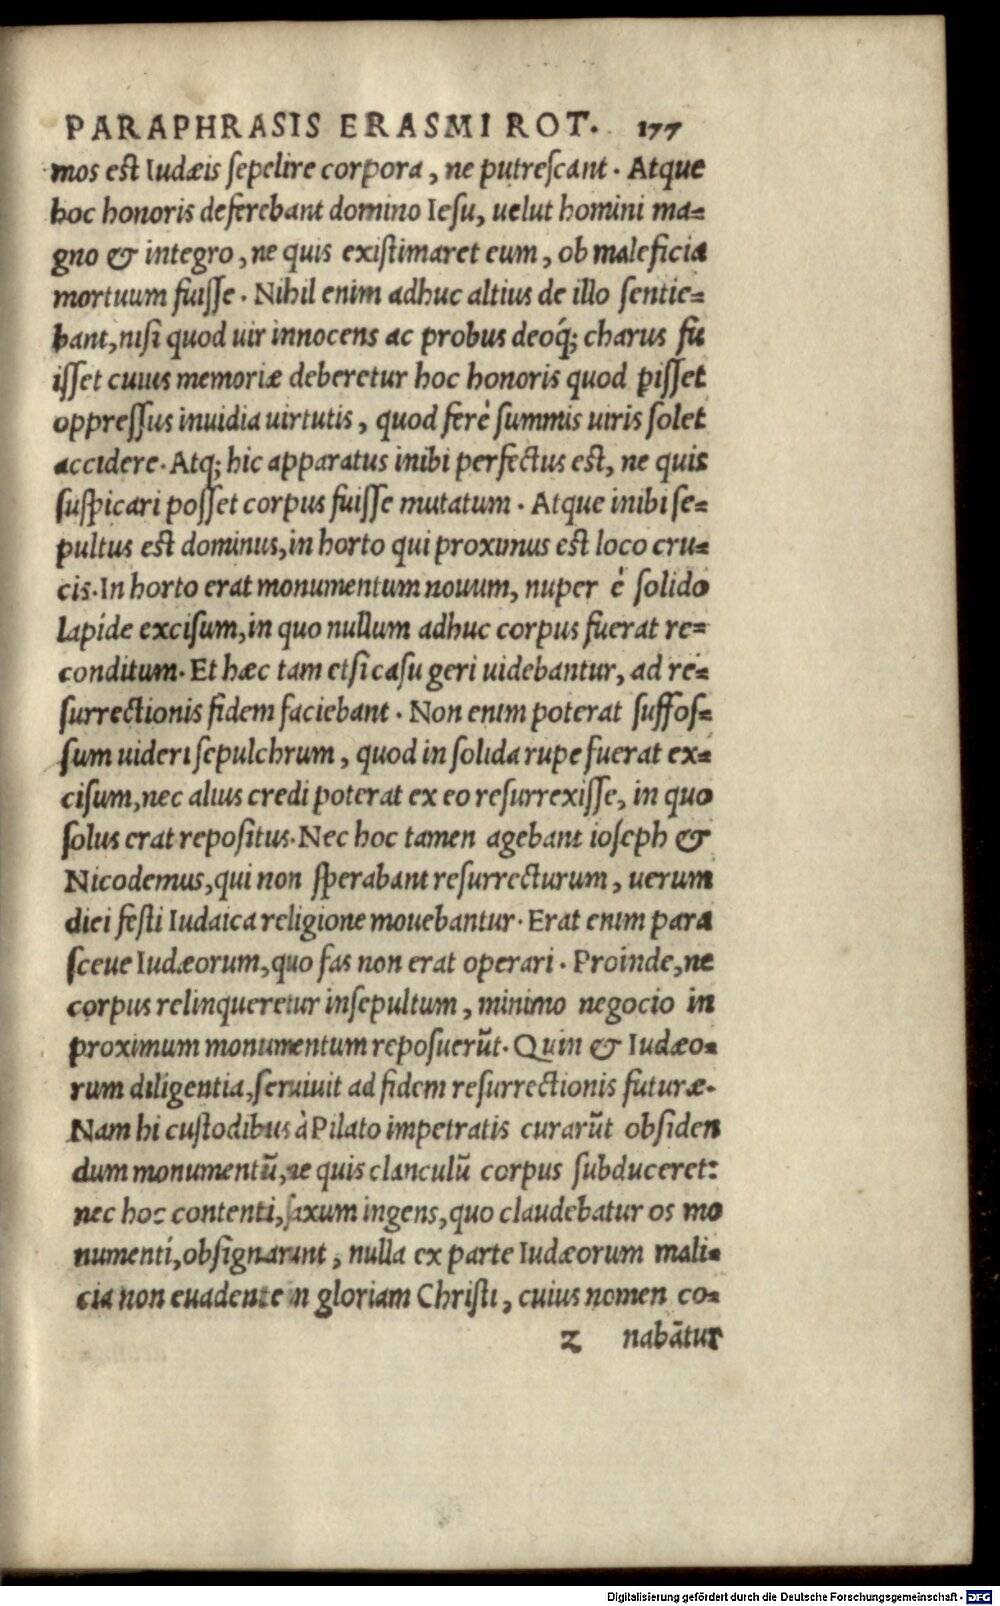 PARAPHRASIS ERASMI ROT. 177
mos est Iudæis sepelire corpora, ne putrescant. Atque
hoc honoris deferebant domino Iesu, uelut homini ma=
gno & integro, ne quis existimaret eum, ob maleficia
mortuum fuisse. Nihil enim adhuc altius de illo sentie=
bant, nisi quod uir innocens ac probus deoq́; charus fu
isset cuius memoriæ deberetur hoc honoris quod pisset
oppressus inuidia uirtutis, quod ferè summis uiris solet
accidere. Atq; hic apparatus inibi perfectus est, ne quis
suspicari posset corpus fuisse mutatum. Atque inibi se=
pultus est dominus, in horto qui proximus est loco cru=
cis. In horto erat monumentum nouum, nuper è solido
lapide excisum, in quo nullum adhuc corpus fuerat re=
conditum. Et hæc tam etsi casu geri uidebantur, ad re=
surrectionis fidem faciebant. Non enim poterat suffos=
sum uideri sepulchrum, quod in solida rupe fuerat ex=
cisum, nec alius credi poterat ex eo resurrexisse, in quo
solus erat repositus. Nec hoc tamen agebant ioseph &
Nicodemus, qui non sperabant resurrecturum, uerum
diei festi Iudaica religione mouebantur. Erat enim para
sceue Iudæorum, quo fas non erat operari. Proinde, ne
corpus relinqueretur insepultum, minimo negocio in
proximum monumentum reposuerūt. Quin & Iudæo=
rum diligentia, seruiuit ad fidem resurrectionis futuræ.
Nam hi custodibus à Pilato impetratis curarūt obsiden
dum monumentū, ne quis clanculū corpus subduceret:
nec hoc contenti, saxum ingens, quo claudebatur os mo
numenti, obsignarunt, nulla ex parte Iudæorum mali=
cia non euadente in gloriam Christi, cuius nomen co=
z nabātur
Digitalisierung gefördert durch die Deutsche Forschungsgemeinschaft - DFG